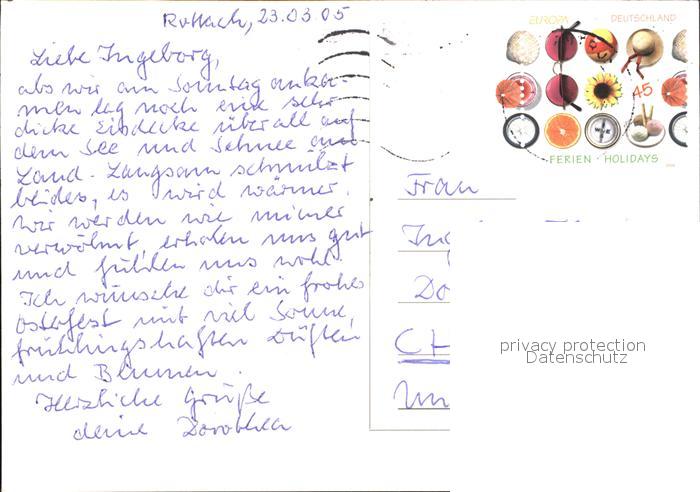 Rottach, 23.03.05
Liebe Ingeborg,
als wir am Sonntag anka-
men lag noch eine sehr
dicke Eisdecke überall auf
dem See und Schnee am
Land. Langsam schmilzt
beides, es wird wärmer.
Wir werden wie immer
verwöhnt, erholen uns gut
und fühlen uns wohl.
Ich wünsche dir ein frohes
Osterfest mit viel Sonne,
frühlingshaften Düften
und Blumen.
Herzliche Grüße
deine Dorothea
EUROPA DEUTSCHLAND
45
FERIEN · HOLIDAYS
Frau
Ing
Do
CH
privacy protection
Datenschutz